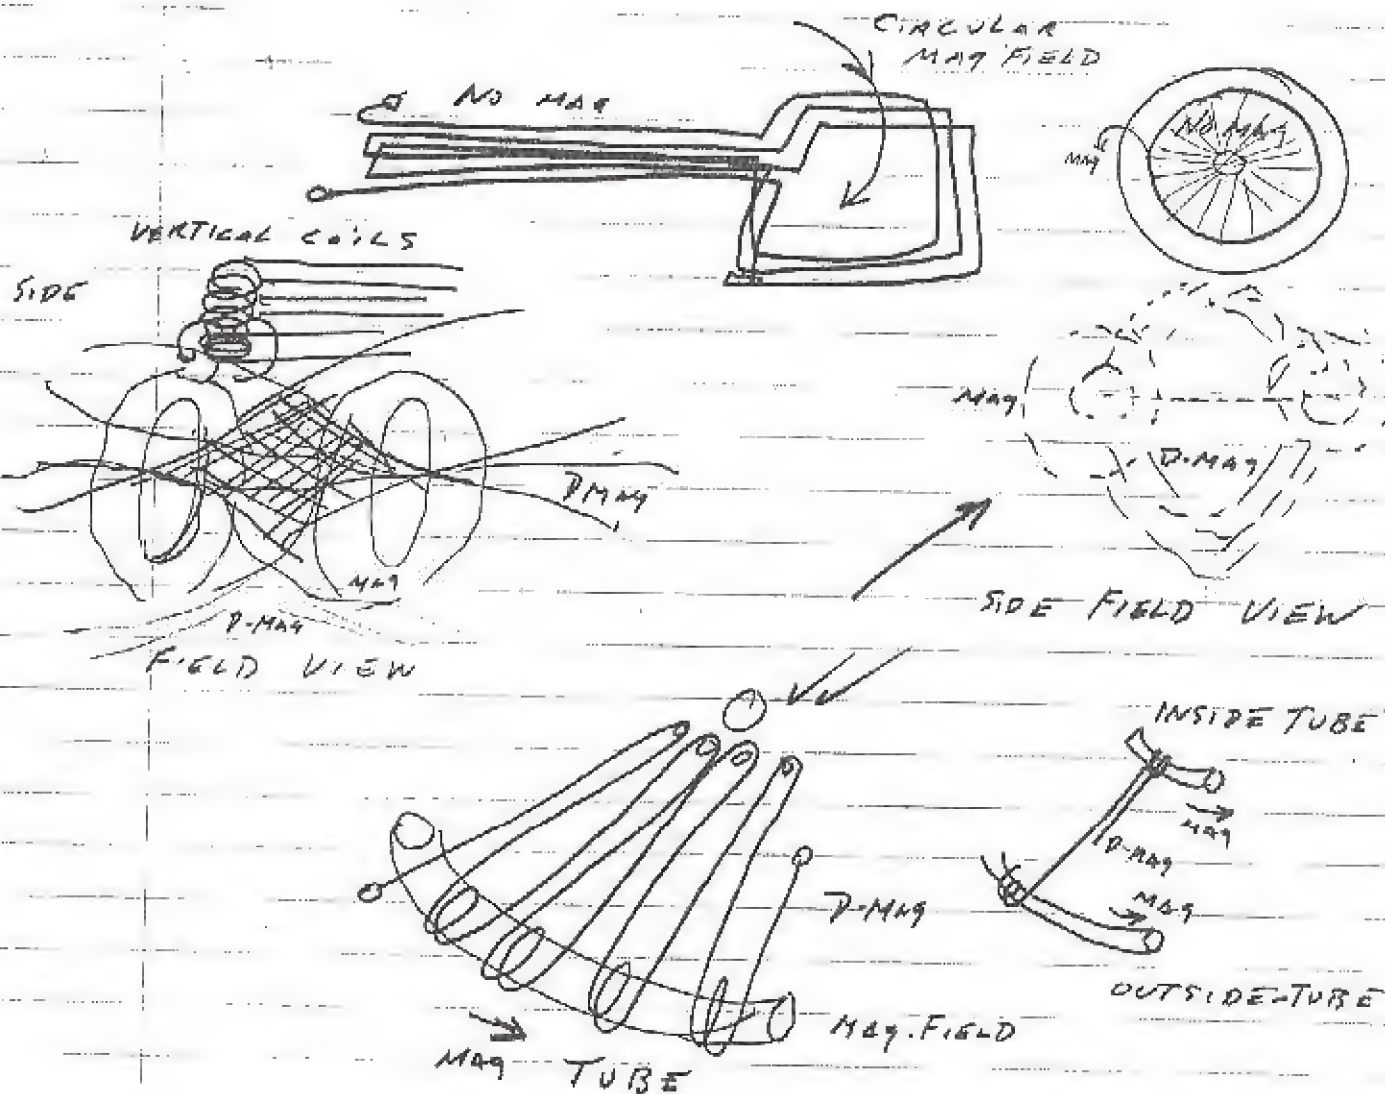 CIRCULAR
MAG FIELD
NO MAG
NO MAG
MAG
VERTICAL COILS
SIDE
MAG
D-MAG
D MAG
MAG
D-MAG
SIDE FIELD VIEW
FIELD VIEW
INSIDE TUBE
MAG
D-MAG
MAG
D-MAG
OUTSIDE-TUBE
MAG. FIELD
MAG TUBE